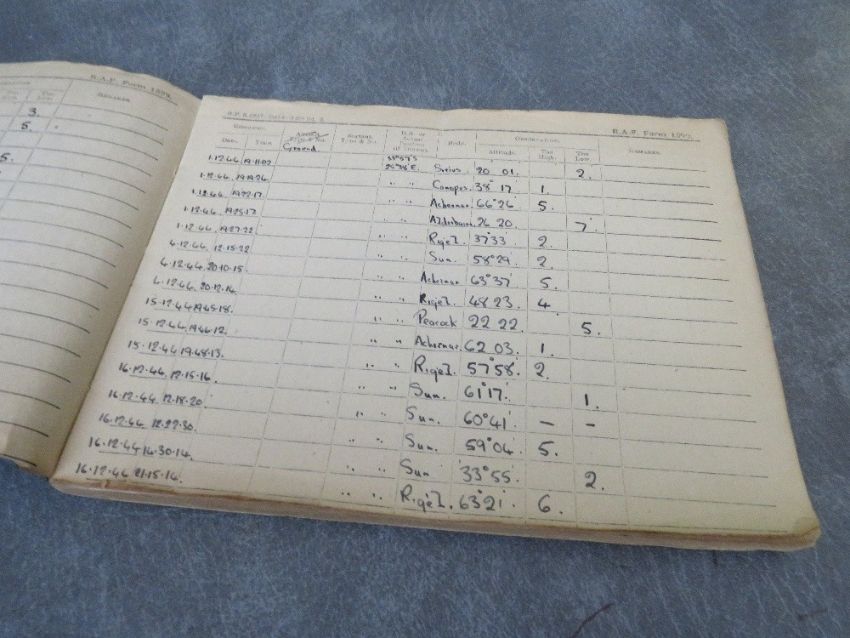 R.A.F. Form 1292.
REMARKS.
3.
5.
5.
R.A.F. Form 1292.
Date. Time. Ground Altitude. Too High. Too Low. REMARKS.
1.12.44. 19.11.02 33°57'S 25°38'E. Sirius. 20 01. 2.
1.12.44. 19.19.26 " " Canopus. 38 17. 1.
1.12.44. 19.22.17 " " Achernar. 66°26 5.
1.12.44. 19.25.17 " " Aldebaran. 26 20. 7.
1.12.44. 19.27.22 " " Rigel. 37°33' 2.
6.12.44. 12.15.22 " " Sun. 58°29'. 2.
6.12.44. 20.10.15. " " Achernar. 63°37' 5.
6.12.44. 20.12.14. " " Rigel. 48 23. 4.
15.12.44. 19.45.18. " " Peacock 22 22. 5.
15.12.44. 19.46.12. " " Achernar. 62 03. 1.
15.12.44. 19.48.13. " " Rigel. 57°58' 2.
16.12.44. 12.15.16. " " Sun. 61°17'. 1.
16.12.44. 12.18.20. " " Sun. 60°41' – –
16.12.44. 12.27.30. " " Sun. 59°04. 5.
16.12.44. 16.30.14. " " Sun. 33°55. 2.
16.12.44. 21.15.14. " " Rigel. 63°21' 6.